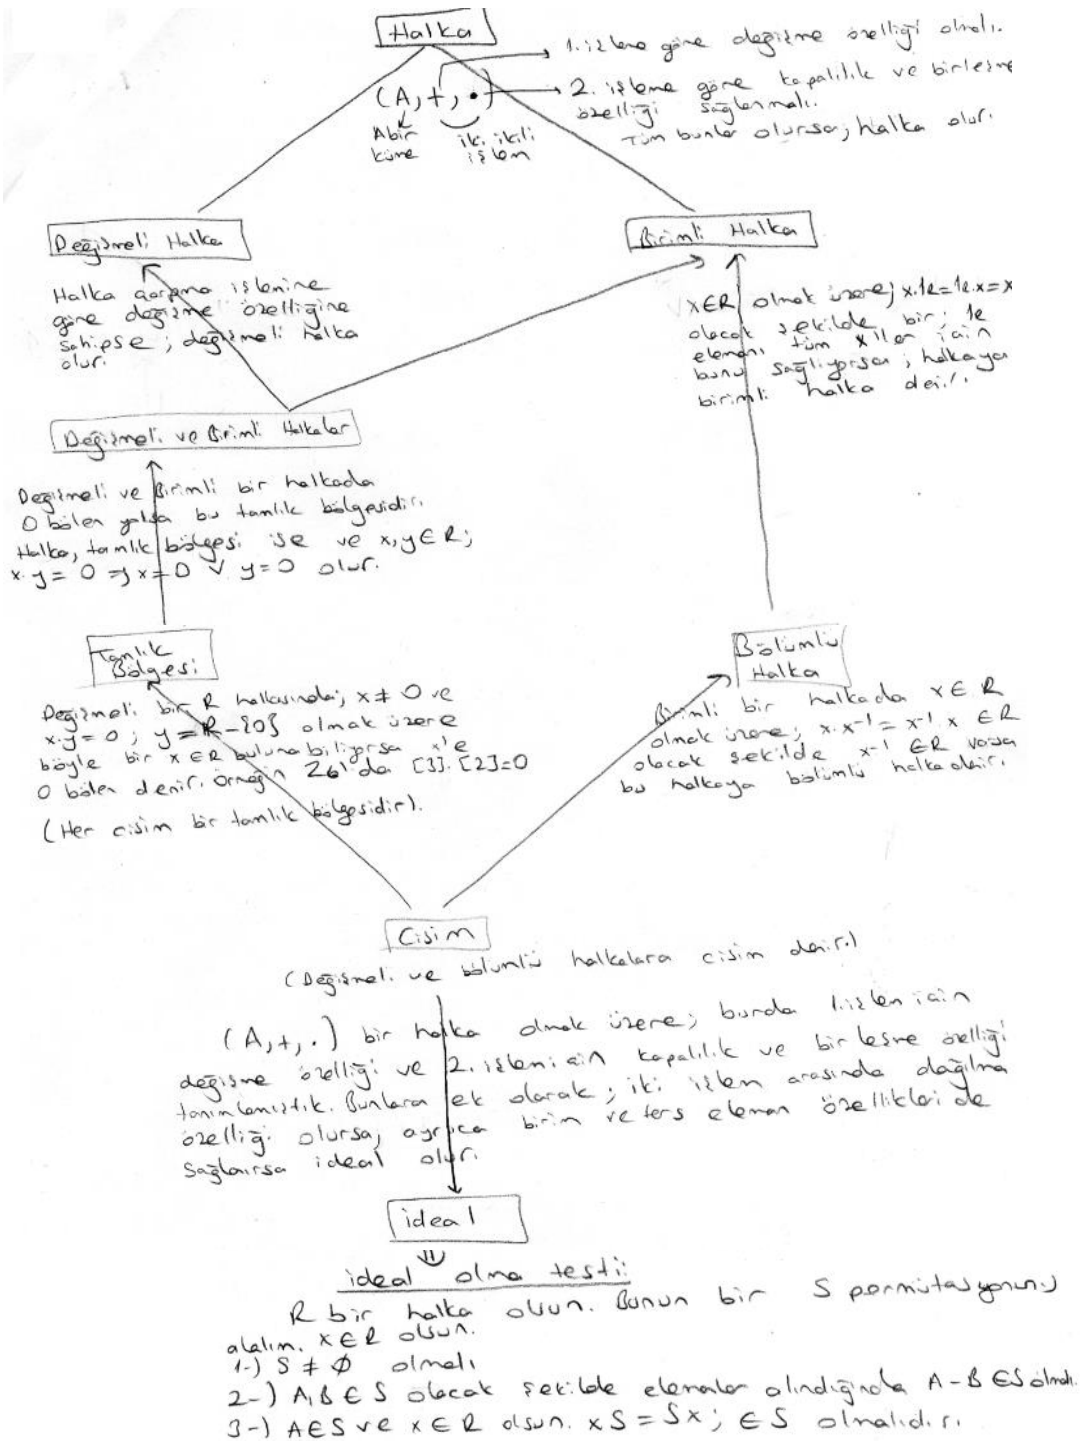 Halka
1. işleme göre değişme özelliği olmalı.
(A, +, •)
2. işleme göre kapalılık ve birleşme
özelliği sağlanmalı.
Tüm bunlar olursa; halka olur.
A bir
küme
iki ikili
işlem
Değişmeli Halka
Birimli Halka
Halka çarpma işlemine
göre değişme özelliğine
sahipse; değişmeli halka
olur.
x∈R olmak üzere; x.1e=1e.x=x
olacak şekilde bir; 1e
elemanı tüm x'ler için
bunu sağlıyorsa; halkaya
birimli halka denir.
Değişmeli ve Birimli Halkalar
Değişmeli ve Birimli bir halkada
0 bölen yoksa bu tamlık bölgesidir.
Halka, tamlık bölgesi ise ve x,y∈R;
x.y = 0 ⇒ x=0 ∨ y=0 olur.
Tamlık
Bölgesi
Bölümlü
Halka
Değişmeli bir R halkasında; x≠0 ve
x.y=0; y=R-{0} olmak üzere
böyle bir x∈R bulunabiliyorsa x'e
0 bölen denir. Örneğin Z6'da [3].[2]=0
(Her cisim bir tamlık bölgesidir).
Birimli bir halkada x∈R
olmak üzere; x.x⁻¹=x⁻¹.x ∈R
olacak şekilde x⁻¹∈R varsa
bu halkaya bölümlü halka denir.
Cisim
(Değişmeli ve bölümlü halkalara cisim denir.)
(A,+,.) bir halka olmak üzere; burda 1.işlem için
değişme özelliği ve 2. işlem için kapalılık ve birleşme özelliği
tanımlamıştık. Bunlara ek olarak; iki işlem arasında dağılma
özelliği olursa, ayrıca birim ve ters eleman özellikleri de
sağlanırsa ideal olur.
ideal
ideal olma testi:
R bir halka olsun. Bunun bir S permütasyonunu
alalım. x∈R olsun.
1-) S ≠ ∅ olmalı
2-) A,B ∈ S olacak şekilde elemanlar alındığında A-B ∈S olmalı.
3-) A∈S ve x∈R olsun. xS=Sx; ∈S olmalıdır.